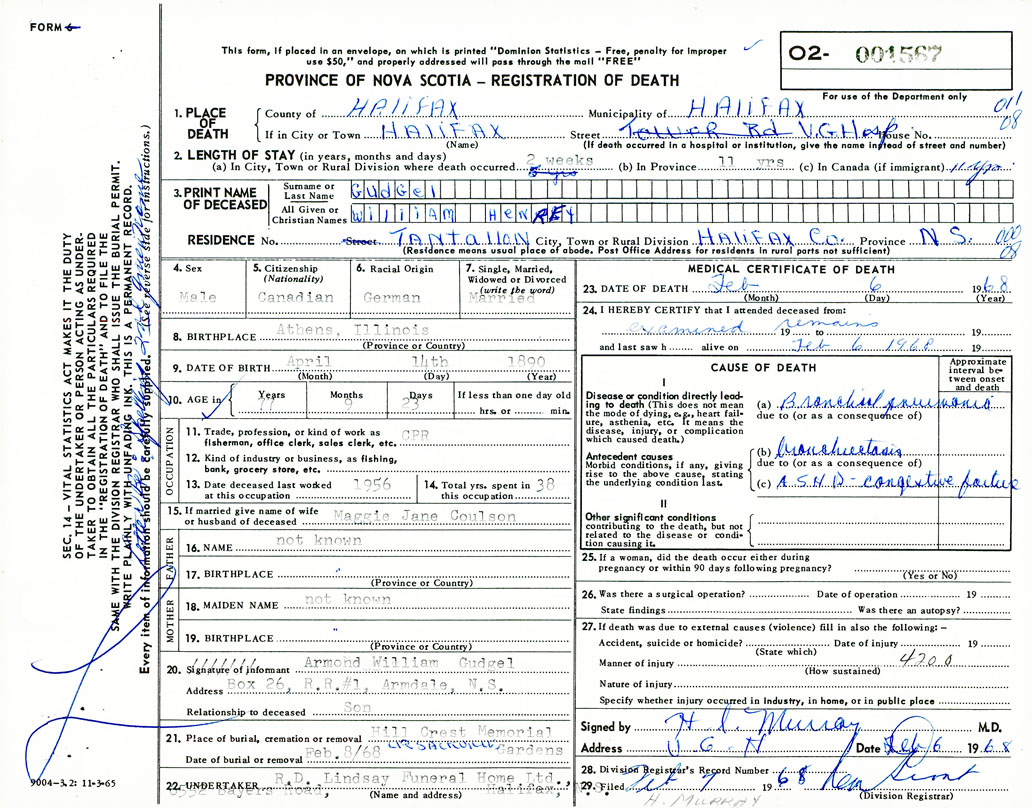 FORM 6
This form, if placed in an envelope, on which is printed "Dominion Statistics – Free, penalty for improper
use $50," and properly addressed will pass through the mail "FREE"
O2- 001567
For use of the Department only
PROVINCE OF NOVA SCOTIA – REGISTRATION OF DEATH
1. PLACE OF DEATH
County of HALIFAX Municipality of HALIFAX 011
If in City or Town HALIFAX Street Tower Rd V.G Hosp House No. 08
(Name) (If death occurred in a hospital or institution, give the name instead of street and number)
2. LENGTH OF STAY (in years, months and days)
(a) In City, Town or Rural Division where death occurred 2 weeks (b) In Province 11 yrs (c) In Canada (if immigrant) 11 yrs
3. PRINT NAME OF DECEASED
Surname or Last Name GUDGEl
All Given or Christian Names WilliAM HENREY
RESIDENCE No. Street TANTAllON City, Town or Rural Division HALIFAX Co. Province N.S. 000
(Residence means usual place of abode. Post Office Address for residents in rural parts not sufficient) 08
4. Sex
Male
5. Citizenship
(Nationality)
Canadian
6. Racial Origin
German
7. Single, Married,
Widowed or Divorced
(write the word)
Married
8. BIRTHPLACE Athens, Illinois
(Province or Country)
9. DATE OF BIRTH April 14th 1890
(Month) (Day) (Year)
10. AGE in Years Months Days If less than one day old
77 9 23 hrs. or min.
OCCUPATION
11. Trade, profession, or kind of work as CPR
fisherman, office clerk, sales clerk, etc.
12. Kind of industry or business, as fishing,
bank, grocery store, etc.
13. Date deceased last worked 1956
at this occupation
14. Total yrs. spent in 38
this occupation
15. If married give name of wife Maggie Jane Coulson
or husband of deceased
FATHER
16. NAME not known
17. BIRTHPLACE "
(Province or Country)
MOTHER
18. MAIDEN NAME not known
19. BIRTHPLACE "
(Province or Country)
20. Signature of informant Armond William Gudgel
Address Box 26, R.R.#1, Armdale, N.S.
Relationship to deceased Son
21. Place of burial, cremation or removal Hill Crest Memorial
LR SACKVILLE Gardens
Date of burial or removal Feb.8/68
22. UNDERTAKER R.D. Lindsay Funeral Home Ltd.,
Bayers Road, Halifax, N.S.
(Name and address)
MEDICAL CERTIFICATE OF DEATH
23. DATE OF DEATH Feb 6 1968
(Month) (Day) (Year)
24. I HEREBY CERTIFY that I attended deceased from:
examined remains
19 to 19
and last saw h alive on Feb 6 1968 19
CAUSE OF DEATH
Approximate interval between onset and death
I
Disease or condition directly leading to death (This does not mean the mode of dying, e.g., heart failure, asthenia, etc. It means the disease, injury, or complication which caused death.)
(a) Bronchial pneumonia
due to (or as a consequence of)
Antecedent causes
Morbid conditions, if any, giving rise to the above cause, stating the underlying condition last.
(b) bronchiectasis
due to (or as a consequence of)
(c) A.S.H.D - congestive failure
II
Other significant conditions
contributing to the death, but not related to the disease or condition causing it.
25. If a woman, did the death occur either during
pregnancy or within 90 days following pregnancy?
(Yes or No)
26. Was there a surgical operation? Date of operation 19
State findings Was there an autopsy?
27. If death was due to external causes (violence) fill in also the following: –
Accident, suicide or homicide? Date of injury 19
(State which)
Manner of injury 4200
(How sustained)
Nature of injury
Specify whether injury occurred in Industry, in home, or in public place
Signed by H I Murray M.D.
Address V. G. H Date Feb 6 1968
28. Division Registrar's Record Number
29. Filed Feb 9 1968
(Division Registrar)
H. MURRAY
SEC. 14 – VITAL STATISTICS ACT MAKES IT THE DUTY
OF THE UNDERTAKER OR PERSON ACTING AS UNDER-
TAKER TO OBTAIN ALL THE PARTICULARS REQUIRED
IN THE "REGISTRATION OF DEATH" AND TO FILE THE
SAME WITH THE DIVISION REGISTRAR WHO SHALL ISSUE THE BURIAL PERMIT.
WRITE PLAINLY WITH UNFADING INK. THIS IS A PERMANENT RECORD.
Every item of information should be carefully supplied. (See reverse side for instructions.)
9004–3.2: 11-3-65